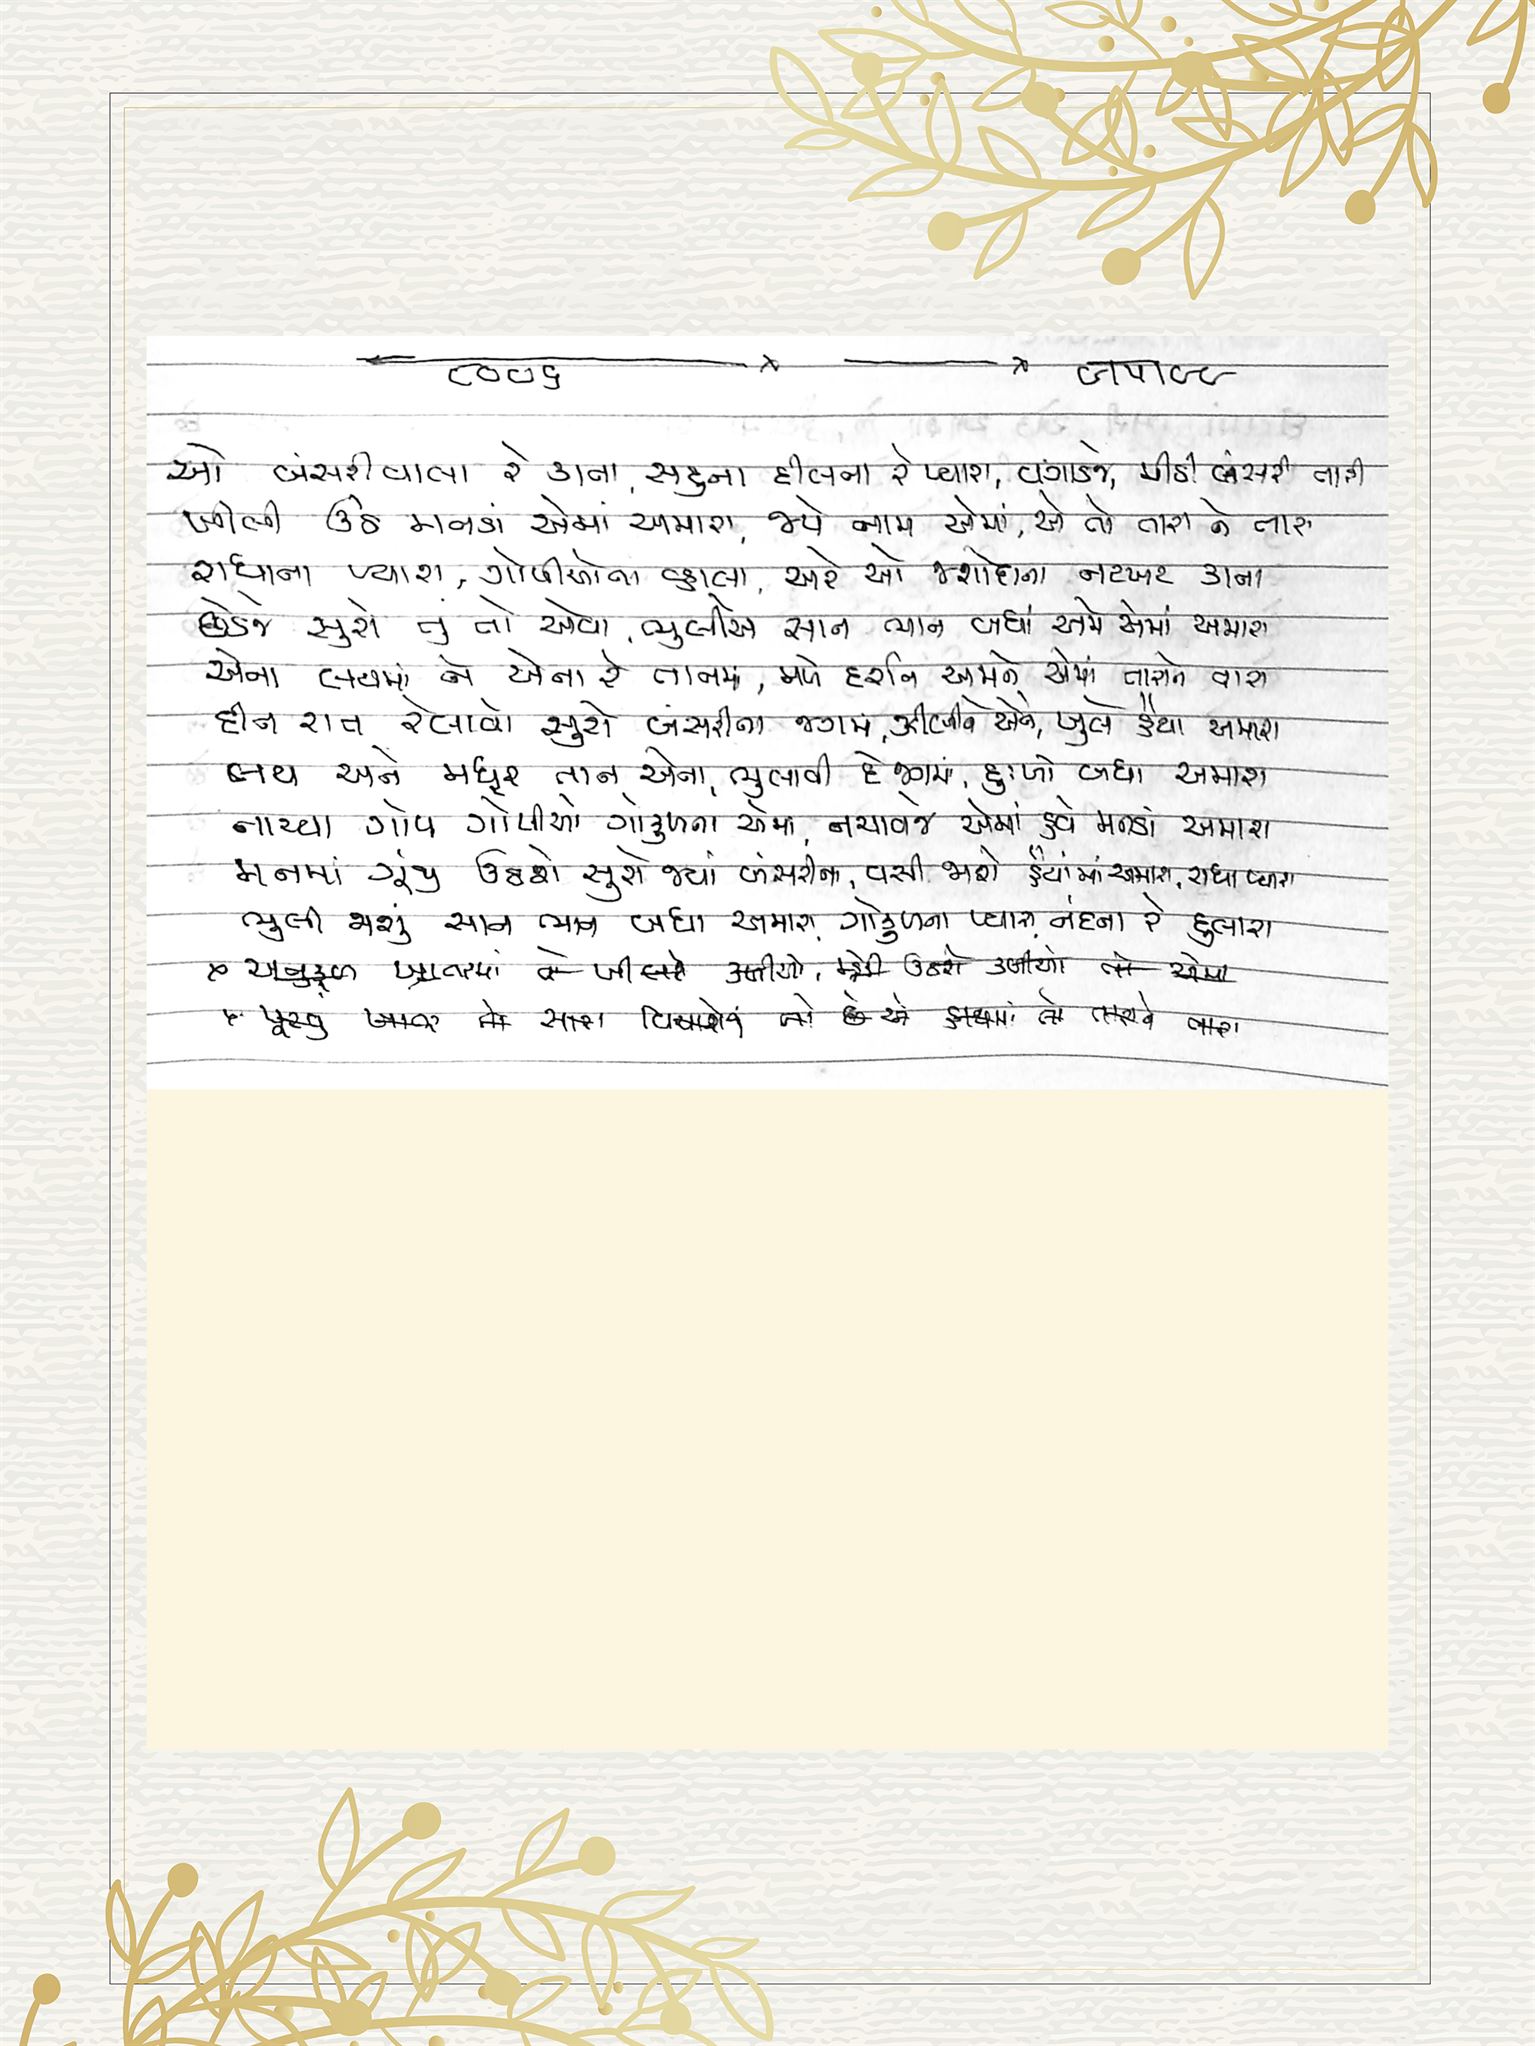 ૮૦૦૬
ઓ બંસરીવાલા રે કાના, સહુના દીલના રે પ્યારા, વગાડજે, મીઠી બંસરી તારી
ખીલી ઉઠે મનડાં એમાં અમારા, જપે નામ એમાં, એ તો તારા ને તારા
રાધાના પ્યારા, ગોપીઓના વ્હાલા, અરે ઓ જશોદાના નટખટ કાના
છેડજે સુરો તું તો એવા, ભુલીએ સાન ભાન બધાં અમે એમાં અમારા
એના લયમાં ને એના રે તાનમાં, મળે દર્શન અમને એમાં તારાને તારા
દીન રાત રેલાવો સુરો બંસરીના જગમાં, ઝીલીને એને, ખુલે હૈયા અમારા
લય અને મધુર તાન એના, ભુલાવી દે જગમાં, દુઃખો બધા અમારા
નાચ્યા ગોપ ગોપીઓ ગોકુળના એમાં, નચાવજે એમાં હવે મનડાં અમારા
મનમાં ગૂંજી ઉઠશે સુરો જ્યાં બંસરીના, વસી જાશે હૈયાંમાં અમારા, રાધા પ્યારા
ભુલી જાશું સાન ભાન બધા અમારા, ગોકુળના પ્યારા, નંદના રે દુલારા